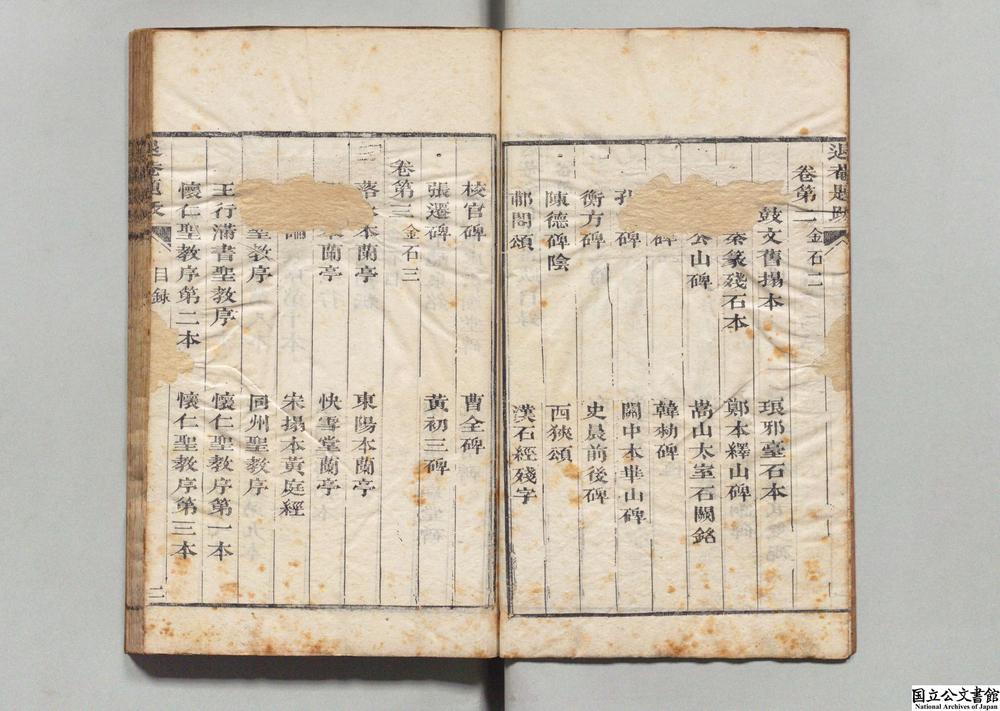 卷第二金石二
鼓文舊搨本 琅邪臺石本
秦篆殘石本 鄭本繹山碑
公山碑 嵩山太室石闕銘
碑 韓勑碑
孔 碑 關中本華山碑
衡方碑 史晨前後碑
陳德碑陰 西狹頌
郙閣頌 漢石經殘字
校官碑 曹全碑
張遷碑 黃初三碑
卷第三金石三
落 本蘭亭 東陽本蘭亭
蘭亭 快雪堂蘭亭
宋搨本黃庭經
聖教序 同州聖教序
王行滿書聖教序 懷仁聖教序第一本
懷仁聖教序第二本 懷仁聖教序第三本
目録
国立公文書館
National Archives of Japan